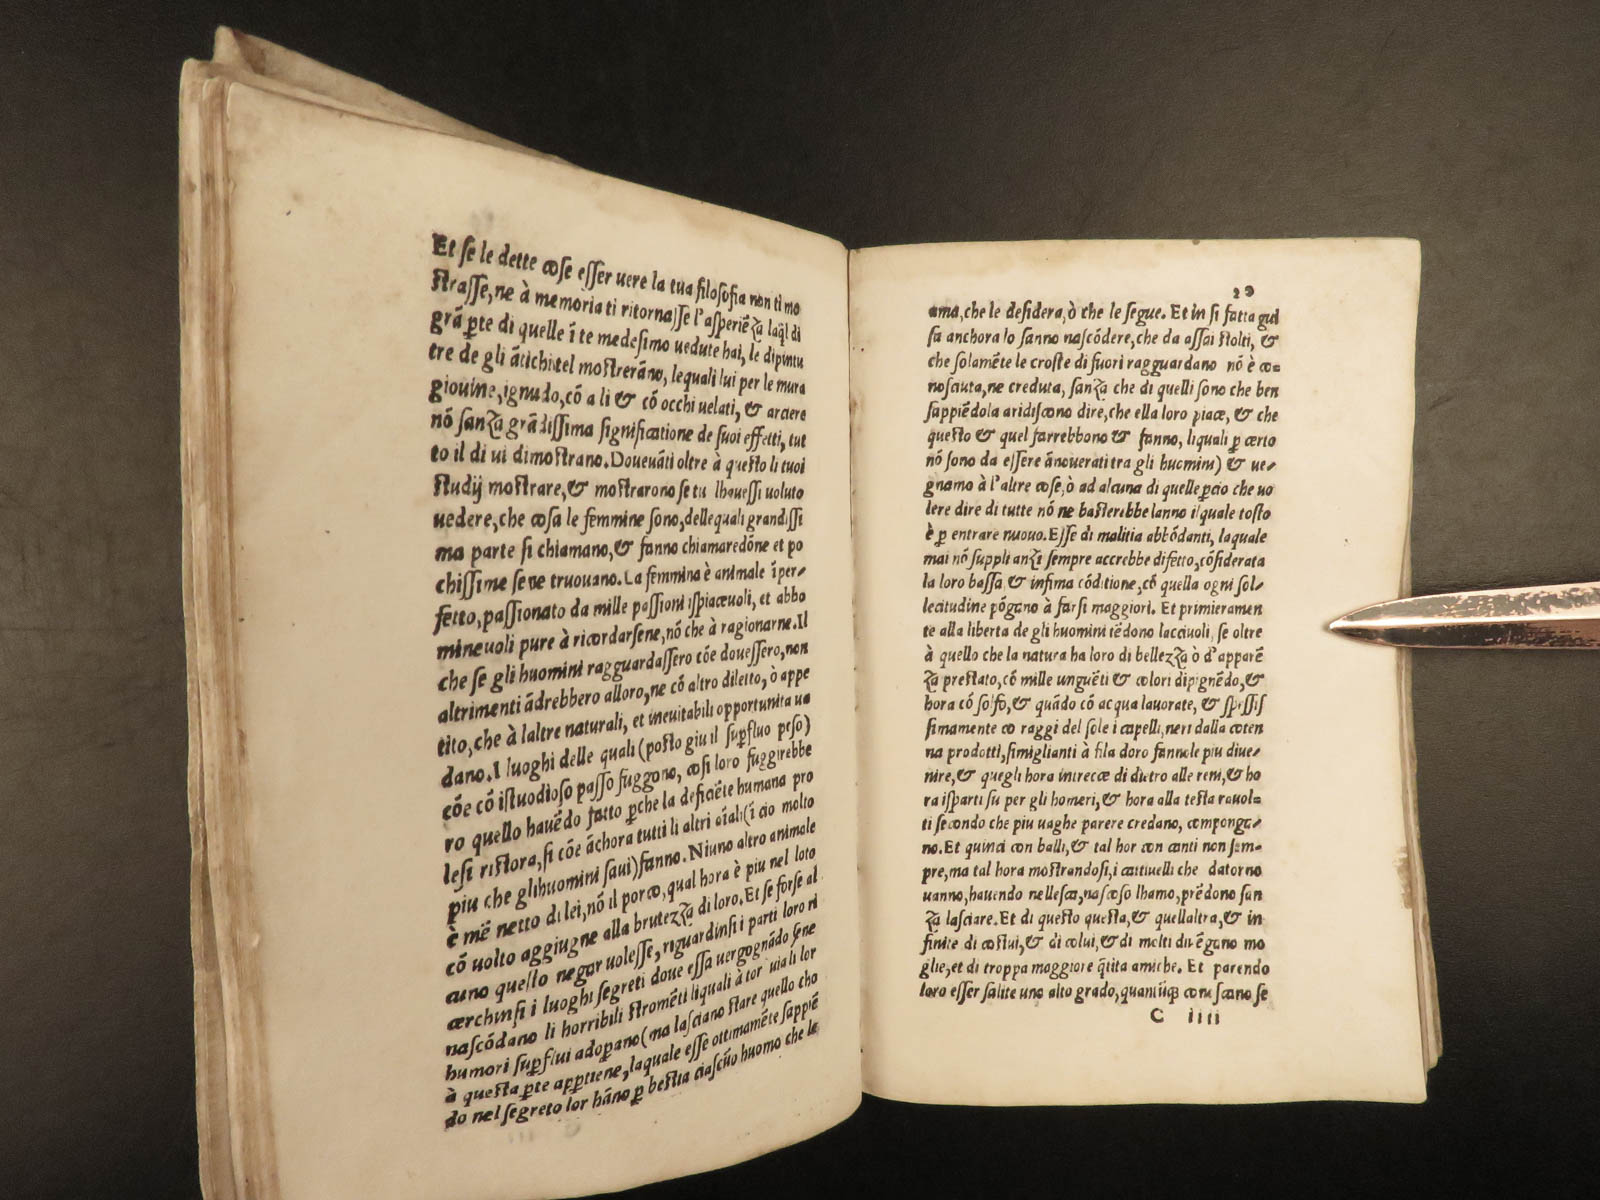 Et se le dette cose esser uere la tua filosofia non ti mo
strasse, ne à memoria ti ritornasse l'asperiẽza laq̃l di
grã ꝑte di quelle ĩ te medesimo uedute hai, le dipintu
tre de gli ãtichi tel mostrerãno, lequali lui per le mura
giouine, ignudo, cõ ali & cõ occhi uelati, & arciere
nõ sanza grãdissima significatione de suoi effetti, tut
to il di ui dimostrano. Doueuãti oltre à questo li tuoi
studij mostrare, & mostrarono se tu lhauessi uoluto
uedere, che cosa le femmine sono, delle quali grandissi
ma parte si chiamano, & fanno chiamare dõne et po
chissime se ne truouano. La femmina è animale ĩper-
fetto, passionato da mille passioni ispiaceuoli, et abbo
mineuoli pure à ricordarsene, nõ che à ragionarne. Il
che se gli huomini ragguardassero cõe douessero, non
altrimenti ãdrebbero alloro, ne cõ altro diletto, ò appe
tito, che à laltre naturali, et ineuitabili opportunita ua
dano. I luoghi delle quali (posto giu il suꝑfluo peso)
cõe cõ istuodioso passo fuggono, cosi loro fuggirebbe
ro quello hauẽdo fatto ꝑche la deficiẽte humana pro
lesi ristora, si cõe ãchora tutti li altri aĩali (ĩ cio molto
piu che gli huomini saui) fanno. Niuno altro animale
è mẽ netto di lei, nõ il porco, qual hora è piu nel loto
cõ uolto aggiugne alla brutezza di loro. Et se forse al
cuno questo negar uolesse, riguardinsi i parti loro ri
cerchinsi i luoghi segreti doue essa uergognãdo sene
nascõdano li horribili stromẽti liquali à tor uia li lor
humori suꝑflui adoꝑano (ma lasciano stare quello cho
à questa ꝑte apꝑtiene, laquale esse ottimamẽte sappiẽ
do nel segreto lor hãno ꝑ bestia ciascũo huomo che le
20
ama, che le desidera, ò che le segue. Et in si fatta gui
sa anchora lo sanno nascõdere, che da assai stolti, &
che solamẽte le croste di fuori ragguardano nõ è co=
nosciuta, ne creduta, sanza che di quelli sono che ben
sappiẽdola aridiscono dire, che ella loro piace, & che
questo & quel farrebbono & fanno, liquali ꝑ certo
nõ sono da essere ãnouerati tra gli huomini) & ue-
gnamo à l'altre cose, ò ad alcuna di quelle ꝑcio che uo
lere dire di tutte nõ ne basterebbe lanno ilquale tosto
è ꝑ entrare nuouo. Esse di malitia abbõdanti, laquale
mai nõ suppli anzi sempre accrebbe difetto, cõsiderata
la loro bassa, & infima cõditione, cõ quella ogni sol-
lecitudine põgono à farsi maggiori. Et primieramen
te alla liberta de gli huomini tẽdono lacciuoli, se oltre
à quello che la natura ha loro di bellezza ò d'apparẽ
za prestato, cõ mille unguẽti & colori dipignẽdo, &
hora cõ solfo, & quãdo cõ acqua lauorate, & spessis
simamente co raggi del sole i capelli, neri dalla coten
na prodotti, simiglianti à fila doro fannole piu diue-
nire, & quegli hora intrecce di dietro alle reni, & ho
ra isparti su per gli homeri, & hora alla testa rauol=
ti secondo che piu uaghe parere credano, compongo-
no. Et quinci con balli, & tal hor con canti non sem=
pre, ma tal hora mostrandosi, i cattiuelli che datorno
uanno, hauendo nellesca, nascoso lhamo, prẽdono san
za lasciare. Et di questo questa, & quellaltra, & in
finite di costui, & di colui, & di molti diuẽgano mo
glie, et di troppa maggiore q̃tita amiche. Et parendo
loro esser salite uno alto grado, quantũq3 conoscano se
C iiii